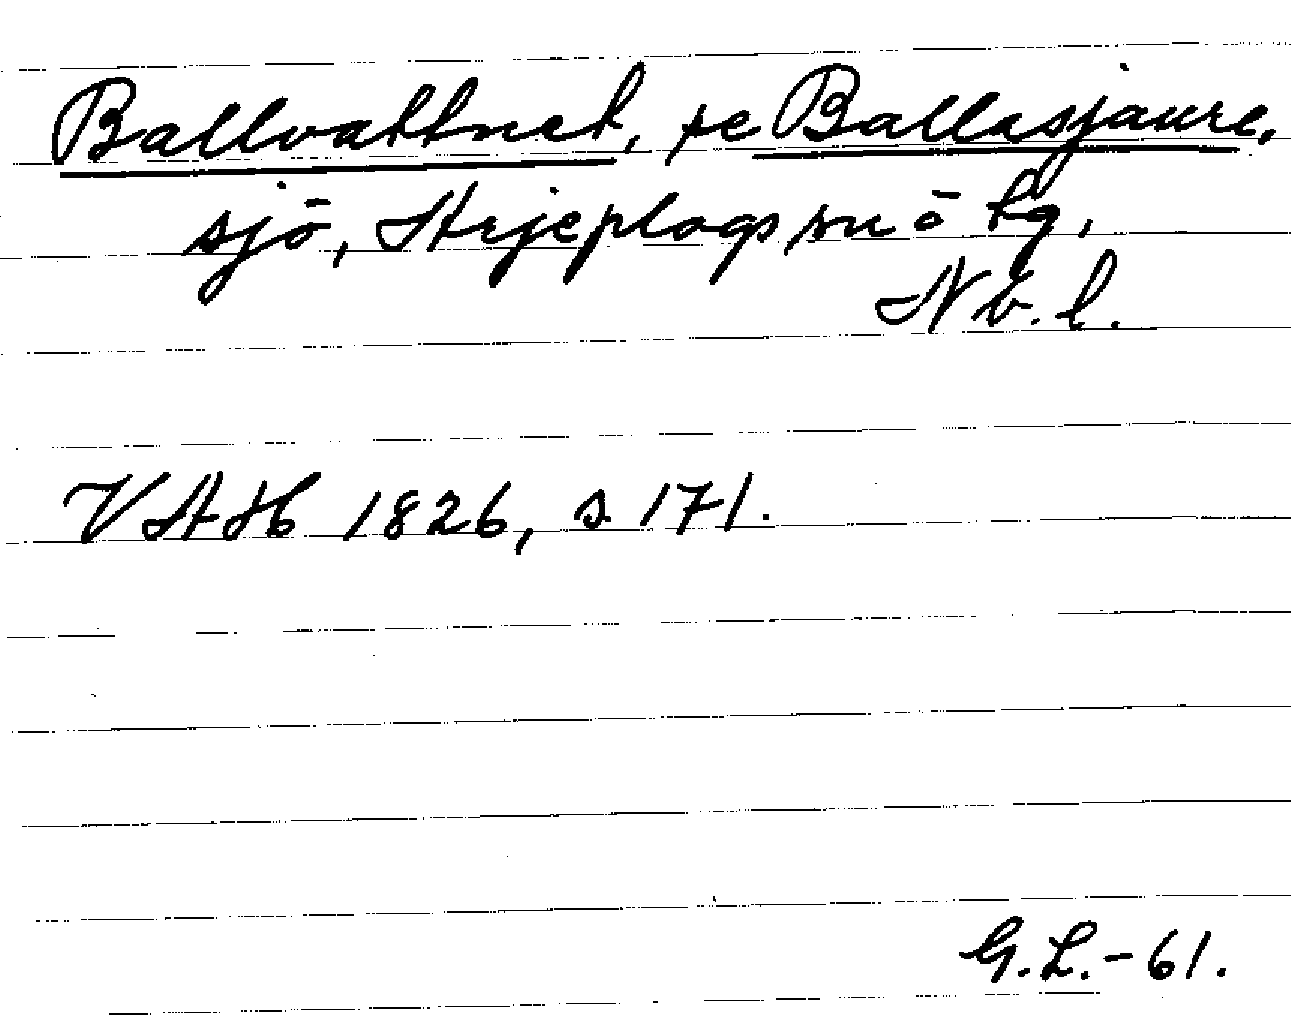 Ballvattnet, se Ballasjaure,
sjö, Arjeplogs snö lg,
Nb. l.
VAH 1826, s. 171.
G.L.-61.